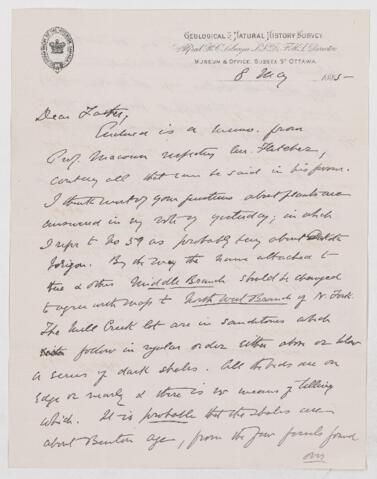 GEOLOGICAL & NATURAL HISTORY SURVEY
Alfred R. C. Selwyn, L.L.D., F.R.S., Director
MUSEUM & OFFICE, SUSSEX ST OTTAWA.
8 May 1885
Dear
Enclosed is a memo. from
Prof. Macoun respecting Mr. Fletcher,
all that can be said in his favour.
I think most of your questions about plants are
answered in my note of yesterday; in which
I refer to No 59 as probably being about Dakota
horizon. By the way the name attached to
& other Middle Branch should be changed
to agree with map to North West Branch of N. Fork.
The Mill Creek lot are in sandstones which
follow in regular order either above or below
a series of dark shales. All the beds are on
edge or nearly & there is no means of telling
which. It is probable that the shales are
about Benton age, from the few fossils found
over